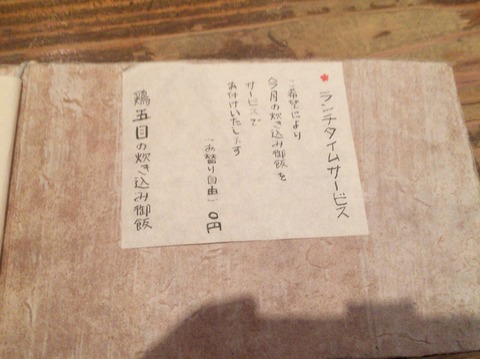 ランチタイムサービス
ご希望により
今月の炊き込み御飯を
サービスで
お付けいたします
(お替り自由) 0円
鶏五目の炊き込み御飯